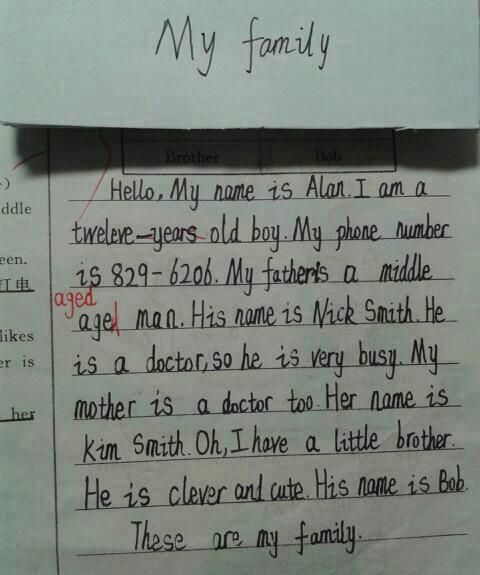 My family
Brother Bob
Hello, My name is Alan. I am a
tweleve-years old boy. My phone number
is 829-6206. My father's a middle
aged
aged man. His name is Nick Smith. He
is a doctor, so he is very busy. My
mother is a doctor too. Her name is
Kim Smith. Oh, I have a little brother.
He is clever and cute. His name is Bob.
These are my family.
)
ddle
een.
打电
likes
er is
her